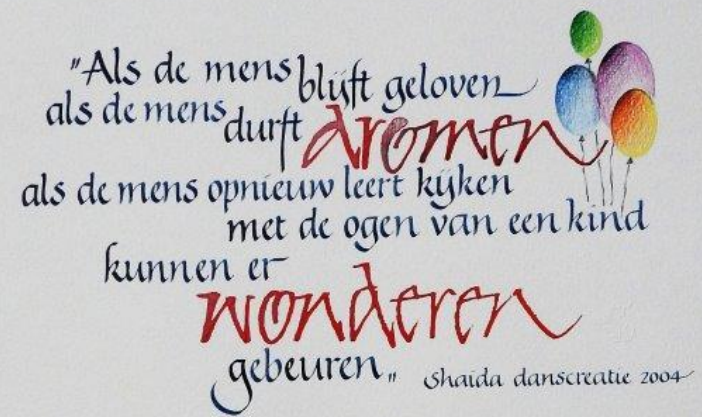 "Als de mens blijft geloven
als de mens durft dromen
als de mens opnieuw leert kijken
met de ogen van een kind
kunnen er
wonderen
gebeuren„ Shaida danscreatie 2004